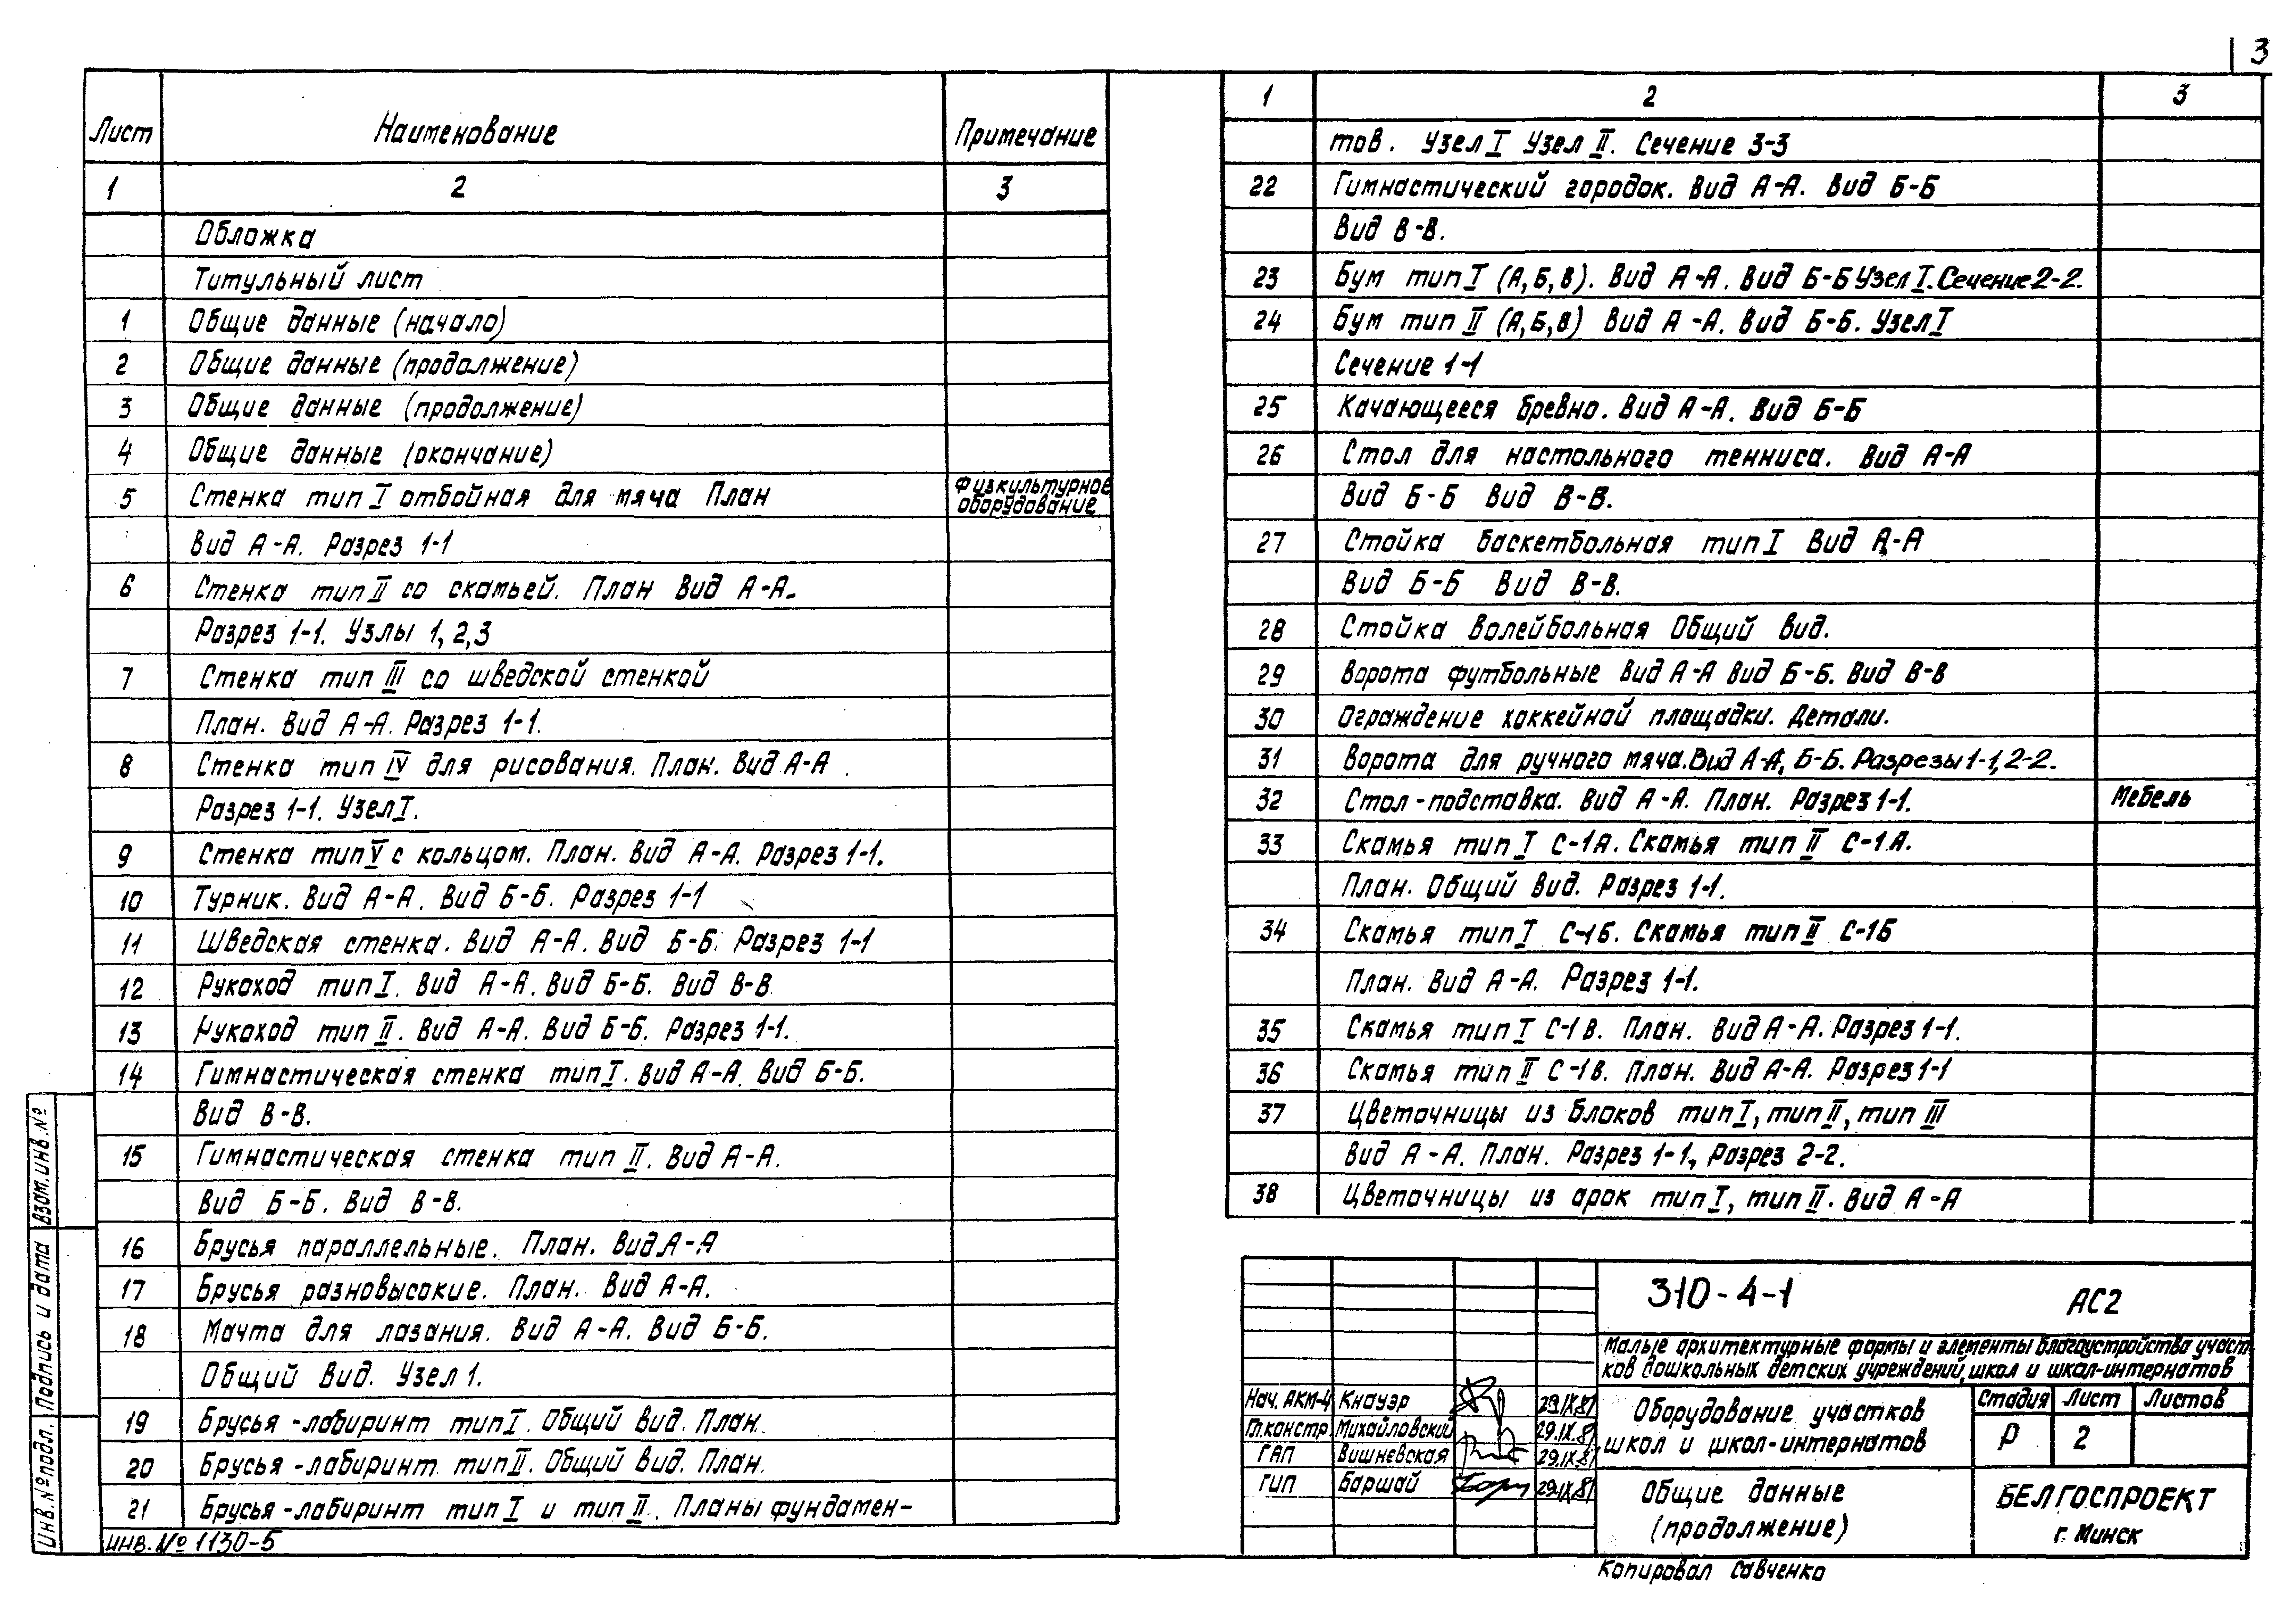 3
Лист Наименование Примечание
1 2 3
Обложка
Титульный лист
1 Общие данные (начало)
2 Общие данные (продолжение)
3 Общие данные (продолжение)
4 Общие данные (окончание)
5 Стенка тип I отбойная для мяча План Физкультурное оборудование
Вид А-А. Разрез 1-1
6 Стенка тип II со скамьей. План Вид А-А.
Разрез 1-1. Узлы 1,2,3
7 Стенка тип III со шведской стенкой
План. Вид А-А. Разрез 1-1.
8 Стенка тип IV для рисования. План. Вид А-А.
Разрез 1-1. Узел I.
9 Стенка тип V с кольцом. План. Вид А-А. Разрез 1-1.
10 Турник. Вид А-А. Вид Б-Б. Разрез 1-1
11 Шведская стенка. Вид А-А. Вид Б-Б. Разрез 1-1
12 Рукоход тип I. Вид А-А. Вид Б-Б. Вид В-В.
13 Рукоход тип II. Вид А-А. Вид Б-Б. Разрез 1-1.
14 Гимнастическая стенка тип I. Вид А-А. Вид Б-Б.
Вид В-В.
15 Гимнастическая стенка тип II. Вид А-А.
Вид Б-Б. Вид В-В.
16 Брусья параллельные. План. Вид А-А
17 Брусья разновысокие. План. Вид А-А.
18 Мачта для лазания. Вид А-А. Вид Б-Б.
Общий Вид. Узел 1.
19 Брусья-лабиринт тип I. Общий вид. План.
20 Брусья-лабиринт тип II. Общий вид. План.
21 Брусья-лабиринт тип I и тип II. Планы фундамен-
1 2 3
тов. Узел I Узел II. Сечение 3-3
22 Гимнастический городок. Вид А-А. Вид Б-Б
Вид В-В.
23 Бум тип I (А,Б,В). Вид А-А. Вид Б-Б Узел I. Сечение 2-2.
24 Бум тип II (А,Б,В) Вид А-А. Вид Б-Б. Узел I
Сечение 1-1
25 Качающееся бревно. Вид А-А. Вид Б-Б
26 Стол для настольного тенниса. Вид А-А
Вид Б-Б Вид В-В.
27 Стойка баскетбольная тип I Вид А-А
Вид Б-Б Вид В-В.
28 Стойка волейбольная Общий вид.
29 Ворота футбольные Вид А-А Вид Б-Б. Вид В-В
30 Ограждение хоккейной площадки. Детали.
31 Ворота для ручного мяча. Вид А-А, Б-Б. Разрезы 1-1, 2-2.
32 Стол-подставка. Вид А-А. План. Разрез 1-1. Мебель
33 Скамья тип I С-1А. Скамья тип II С-1А.
План. Общий вид. Разрез 1-1.
34 Скамья тип I С-1Б. Скамья тип II С-1Б
План. Вид А-А. Разрез 1-1.
35 Скамья тип I С-1В. План. Вид А-А. Разрез 1-1.
36 Скамья тип II С-1В. План. Вид А-А. Разрез 1-1
37 Цветочницы из блоков тип I, тип II, тип III
Вид А-А. План. Разрез 1-1, Разрез 2-2.
38 Цветочницы из арок тип I, тип II. Вид А-А
310-4-1 АС2
Малые архитектурные формы и элементы благоустройства участ
ков дошкольных детских учреждений, школ и школ-интернатов
Нач. АКМ-4 Кнауэр 29.IX.81
Гл.констр. Михайловский 29.IX.81
ГАП Вишневская 29.IX.81
ГИП Баршай 29.IX.81
Оборудование участков
школ и школ-интернатов
Стадия Лист Листов
Р 2
Общие данные
(продолжение)
БЕЛГОСПРОЕКТ
г. Минск
Копировал Савченко
Взам.инв.№
Подпись и дата
Инв.№подл.
инв. № 1130-5